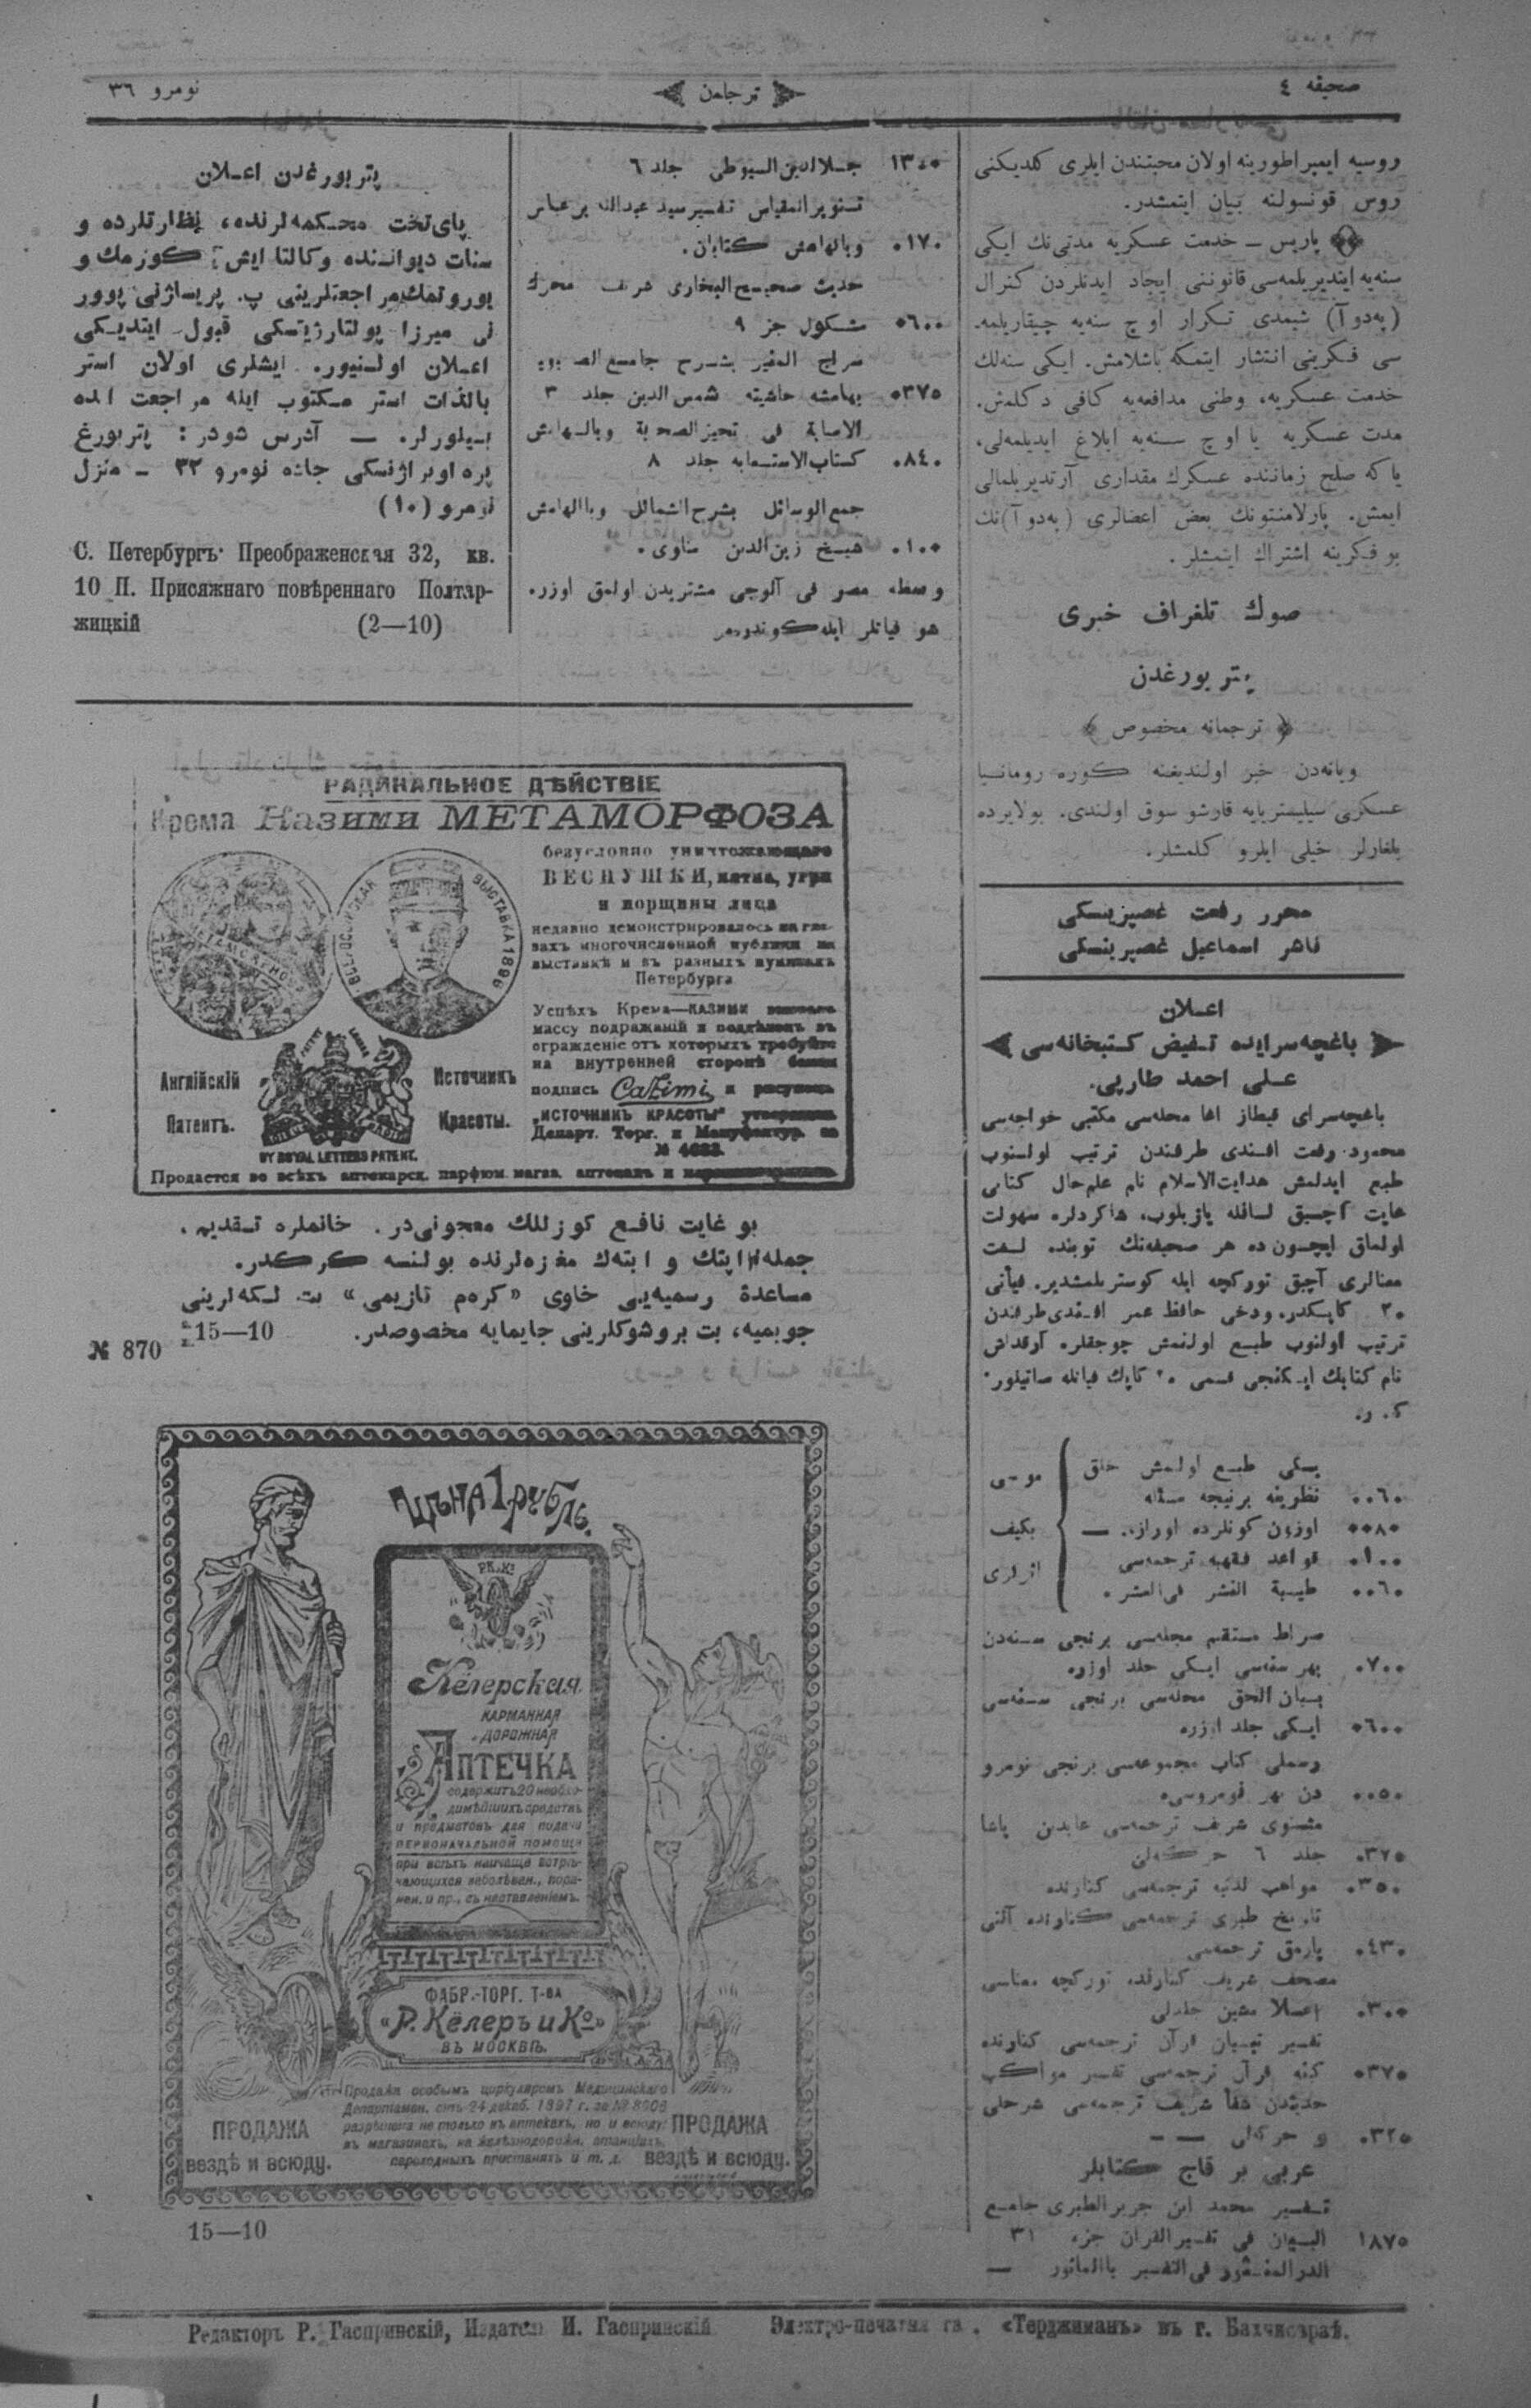 صحیفه ٤
ترجمان
نومرو ٣٦
روسیه ایمپراطورینه اولان محبتندن ایلری كلدیكنی
روس قونسولنه بیان ایتمشدر.
پاریس ــ خدمت عسكریه مدتی‌نك ایكی
سنه‌یه ایندیریلمه‌سی قانوننی ایجاد ایدنلردن كنرال
(په‌دوآ) شیمدی تكرار اوچ سنه‌یه چیقاریلمه‌
سی فكرینی انتشار ایتمكه باشلامش. ایكی سنه‌لك
خدمت عسكریه، وطنی مدافعه‌یه كافی دكلمش.
مدت عسكریه یا اوچ سنه‌یه ابلاغ ایدیلمه‌لی،
یا كه صلح زماننده عسكرك مقداری آرتدیریلمالی
ایمش. پارلامنتونك بعض اعضالری (په‌دوآ)نك
بو فكرینه اشتراك ایتمشلر.
صوك تلغراف خبری
پتربورغدن
﴿ ترجمانه مخصوص ﴾
ویانه‌دن خبر اولندیغنه كوره رومانیا
عسكری سیلیستریایه قارشو سوق اولندی. بولایرده
بلغارلر خیلی ایلرو كلمشلر.
محرر رفعت غصپرینسكی
ناشر اسماعیل غصپرینسكی
اعلان
باغچه‌سرایده تـفیض كـتبخانه‌سی
عـلی احمد طارپی.
باغچه‌سرای قیطاز اغا محله‌سی مكتبی خواجه‌سی
محمود رفعت افـندی طرفندن ترتیب اولـنوب
طبع ایدلمش هدایت‌الاسلام نام علم‌حال كتابی
غایت آچـیق لسانله یازیلوب، شاكردلره سهولت
اولماق ایچـون ده هر صحیفه‌نك توبنده لـغت
معنالری آچیق توركچه ایله كوستریلمشدیر. فیأتی
٢٠ كاپكدر. ودخی حافظ عمر افـندی طرفندن
ترتیب اولنوب طبـع اولنمش چوجقلره آرقداش
نام كتابك ایـكنجی قسمی ٢٠ كاپك فیاتله صاتیلور.
ك. ر.
یسكی طبـع اولـمش خلق
نظرینه برنیچه مسئله ٠٠٦٠
اوزون كونلرده اوراز. — ٠٠٨٠
قواعد فـقهیه ترجمه‌سی ٠١٠٠
طیـبة النشر فی‌العشر . ٠٠٦٠
موسی
بكیف
اثرلری
صراط مستقیم مجله‌سی برنجی سـنه‌دن
بهر سنه‌سی ایـكی جلد اوزره ٠٧٠٠
بـیان الحق مجله‌سی برنجی سـنه‌سی
ایـكی جلد اوزره ٠٦٠٠
رسملی كتاب مجموعه‌سی برنجی نومرو
دن بهر نومروسی ٠٠٥٠
مثنوی شریف ترجمه‌سی عابدین پاشا
جلد ٦ ٠٣٧٥
مواهب لدنیه ترجمه‌سی كنارنده ٠٣٥٠
تاریخ طبری ترجمه‌سی كنارنده آلتی
پارمق ترجمه‌سی ٠٤٣٠
مصحف شریف كنارنده توركچه معناسی
اعـلا مشین جلدلی ٠٣٠٠
تفسیر تبـیان قرآن ترجمه‌سی كنارنده
كنه قرآن ترجمه‌سی تفسیر مواكب ٠٣٧٥
حدیثدن شفأ شریف ترجمه‌سی شرحلی
و حركه‌لی — — ٠٣٢٥
عربی بر قاچ كتابلر
تـفسیر محمد ابن جریر الطبری جامـع
البـیان فی تفسیرالقرآن جزء ٣١ ١٨٧٥
الدرالمنـثور فی‌التفسیر باالمأثور —
جـلالدین السیوطی جلد ٦ ١٣٥٠
تـنویرالمقیاس تفسیر سید عبدالله بن عباس
وبالهامش كتابان. ٠١٧٠
حدیث صحیـح البخاری شریف محرك
مشـكول جز ٩ ٠٦٠٠
سراج المنیر بشـرح جامـع الصـ
بهامشه حاشیته شمس الدین جلد ٣ ٠٣٧٥
الاصابة فی تمیز الصحابة وبالـهامش
كـتاب الاستـیعابه جلد ٨ ٠٨٤٠
جمع الوسائل بشرح الشمائل وباالهامش
شیـخ زین‌الدین مناوی . ٠١٠٠
وسطه مصر فی آلوجی مشتریدن اولمق اوزره
شو فیاتلر ایله كوندریلر
پتربورغدن اعـلان
پای‌تخت محـكمه‌لرنده، نظارتلرده و
سنات دیوانـنده وكالتا ایش كوزمك و
یوروتمك مراجعتلرینی پ. پریساژنی پوور
نی میرزا پولتارژیتسكی قبول ایتدیـكی
اعـلان اولـنیور. ایشلری اولان استر
بالذات استر مـكتوب ایله مراجعت ایده
بـیلورلر. — آدرس شودر: پتربورغ
پره اوبراژنسكی جاده نومرو ٣٢ ــ منزل
نومرو (١٠)
С. Петербургъ Преображенская 32, кв.
10 П. Присяжнаго повѣреннаго Полтар-
жицкій (2—10)
РАДИКАЛЬНОЕ ДѢЙСТВІЕ
Крема Казими МЕТАМОРФОЗА
безусловно уничтожающаго
ВЕСНУШКИ, пятна, угри
и морщины лица
недавно демонстрировалось на гла-
захъ многочисленной публики на
выставкѣ и въ разныхъ пунктахъ
Петербурга
ВЫСТАВКА 1896
Успѣхъ Крема—КАЗИМИ
массу подражаній и поддѣлокъ въ
огражденіе отъ которыхъ требуйте
на внутренней сторонѣ банки
подпись Cazimi и рисунокъ
„ИСТОЧНИКЪ КРАСОТЫ“
Департ. Торг. и Мануфактур. за
№ 4683.
Англійскій
Патентъ.
Источникъ
Красоты.
BY ROYAL LETTERS PATENT.
Продается во всѣхъ аптекарск. парфюм. магаз. аптекахъ и
بو غایت نافـع كوزللك معجونی‌در. خانملره تـقدیم.
جمله اپتك و ابته‌ك مغزه‌لرنده بولـنسه كركدر.
مساعدهٔ رسمیه‌یی حاوی «كره‌م قازیمی» بت لـكه‌لرینی
جویمیه، بت بروشوكلرینی جایمایه مخصوصدر.
15—10
№ 870
ЦѢНА 1 РУБЛЬ.
Р.К. и Ко
Кёлерская
КАРМАННАЯ
ДОРОЖНАЯ
АПТЕЧКА
содержитъ 20 необхо-
димѣйшихъ средствъ
и предметовъ для подачи
ПЕРВОНАЧАЛЬНОЙ ПОМОЩИ
при всѣхъ наичаще встрѣ-
чающихся заболѣван., пора-
нен. и пр., съ наставленіемъ.
ФАБР.-ТОРГ. Т-ВА
«Р. Кёлеръ и Ко»
ВЪ МОСКВѢ.
Продажа особымъ циркуляромъ Медицинскаго
Департамен. отъ 24 декаб. 1897 г. за №
разрѣшена не только въ аптекахъ, но и всюду:
въ магазинахъ, на желѣзнодорожн. станціяхъ,
пароходныхъ пристаняхъ и т. д.
ПРОДАЖА
вездѣ и всюду.
ПРОДАЖА
вездѣ и всюду.
15—10
Редакторъ Р. Гаспринскій, Издатель И. Гаспринскій
Электро-печатня га . «Терджиманъ» въ г. Бахчисараѣ.